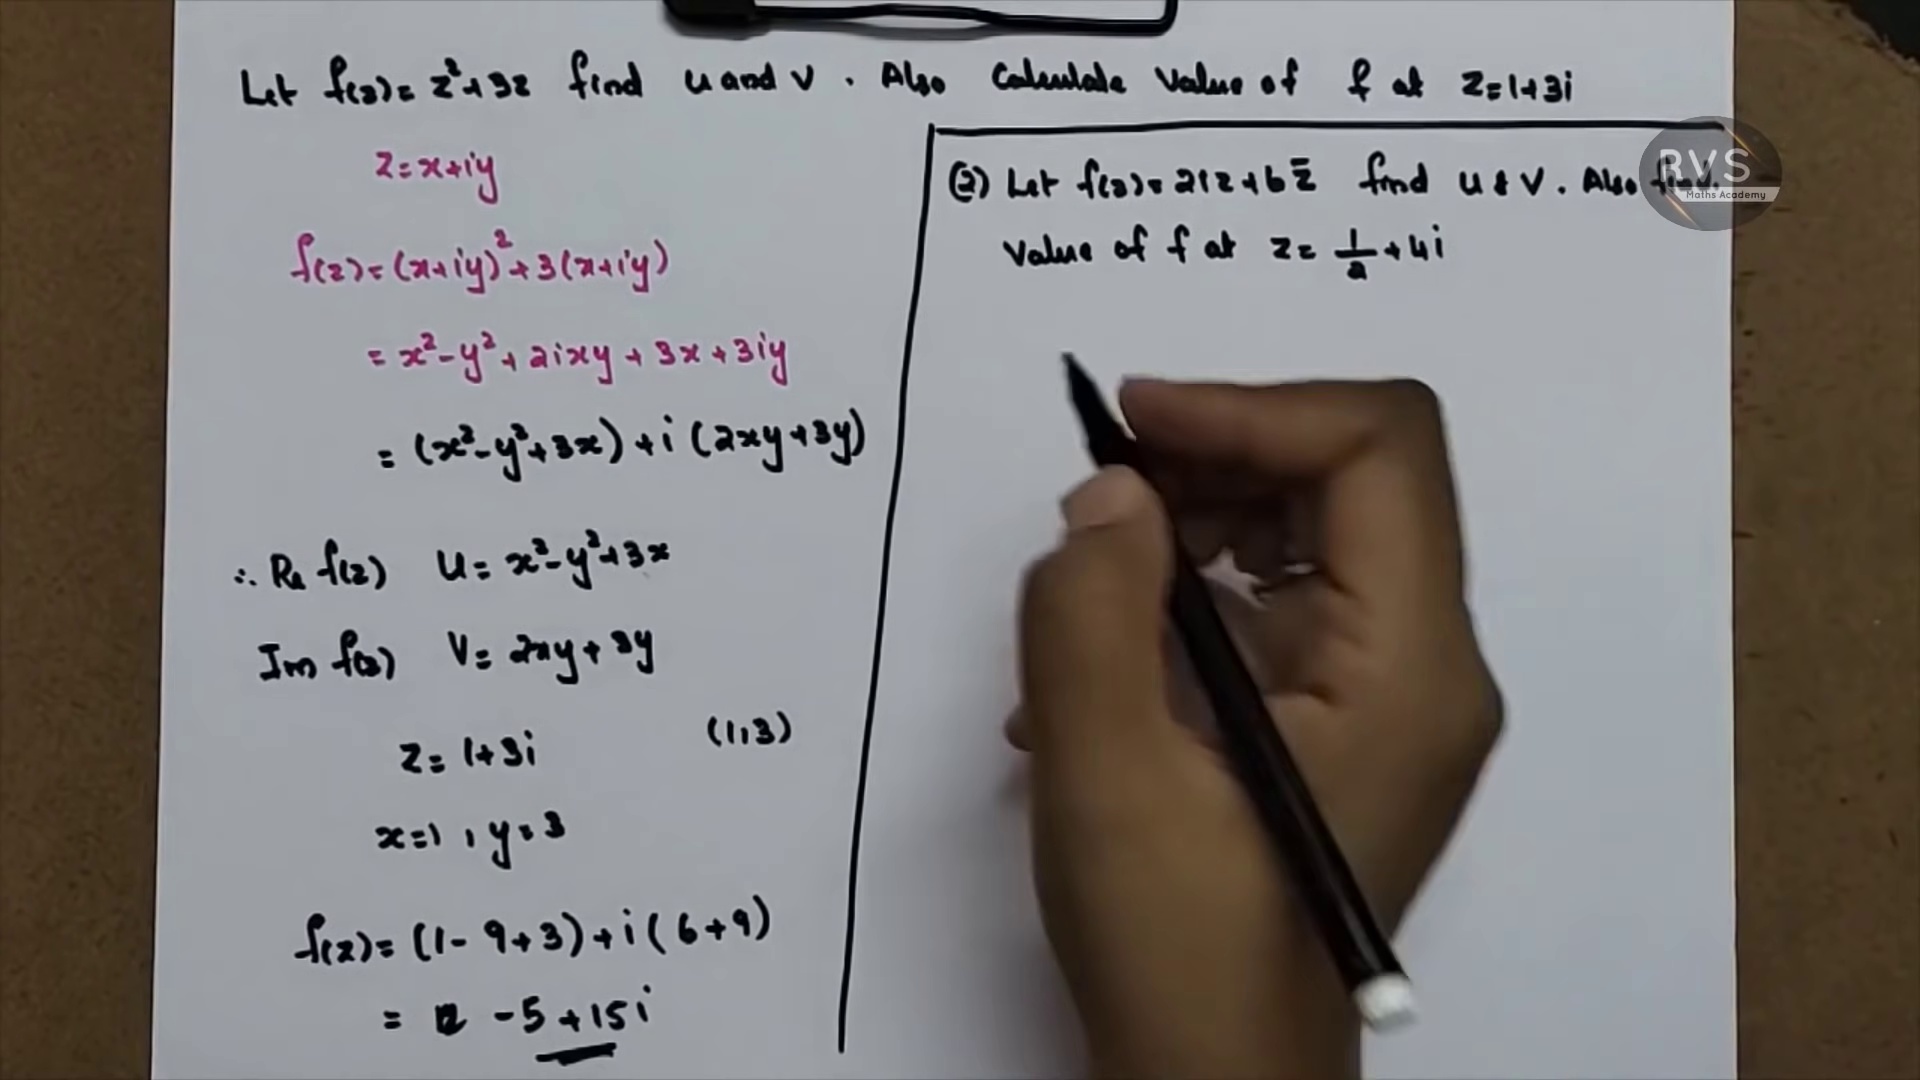 Let f(z) = z² + 3z find u and v. Also Calculate Value of f at z = 1+3i
z = x+iy
f(z) = (x+iy)² + 3(x+iy)
= x² - y² + 2ixy + 3x + 3iy
= (x² - y² + 3x) + i (2xy + 3y)
∴ Re f(z) u = x² - y² + 3x
Im f(z) v = 2xy + 3y
z = 1+3i (1,3)
x = 1, y = 3
f(z) = (1 - 9 + 3) + i (6 + 9)
= -5 + 15i
(2) Let f(z) = 2iz + 6z̄ find u & v. Also find
value of f at z = 1/2 + 4i
RVS
Maths Academy